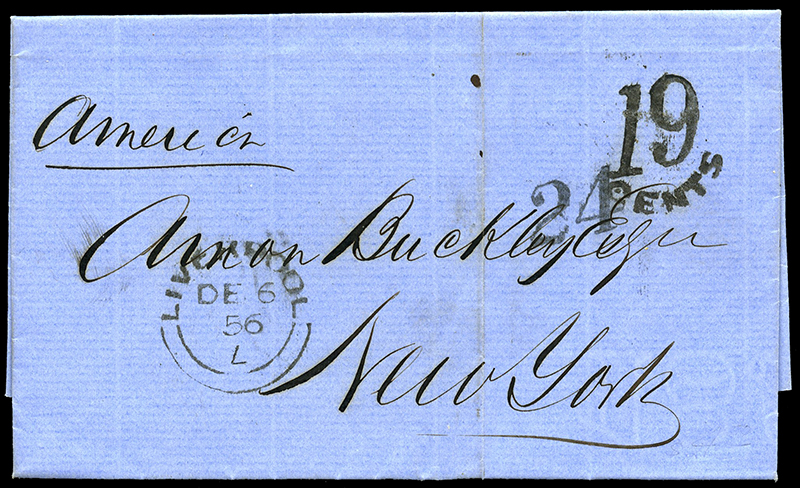 America
19
CENTS
24
Amon Buckley Esqr
LIVERPOOL
DE 6
56
L
New York